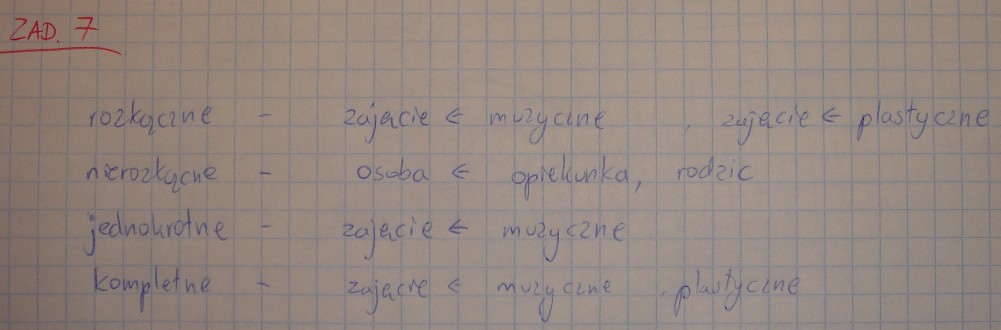 ZAD. 7
rozłączne - zajęcie ← muzyczne , zajęcie ← plastyczne
nierozłącne - osoba ← opiekunka, rodzic
jednokrotne - zajęcie ← muzyczne
kompletne - zajęcie ← muzyczne , plastyczne